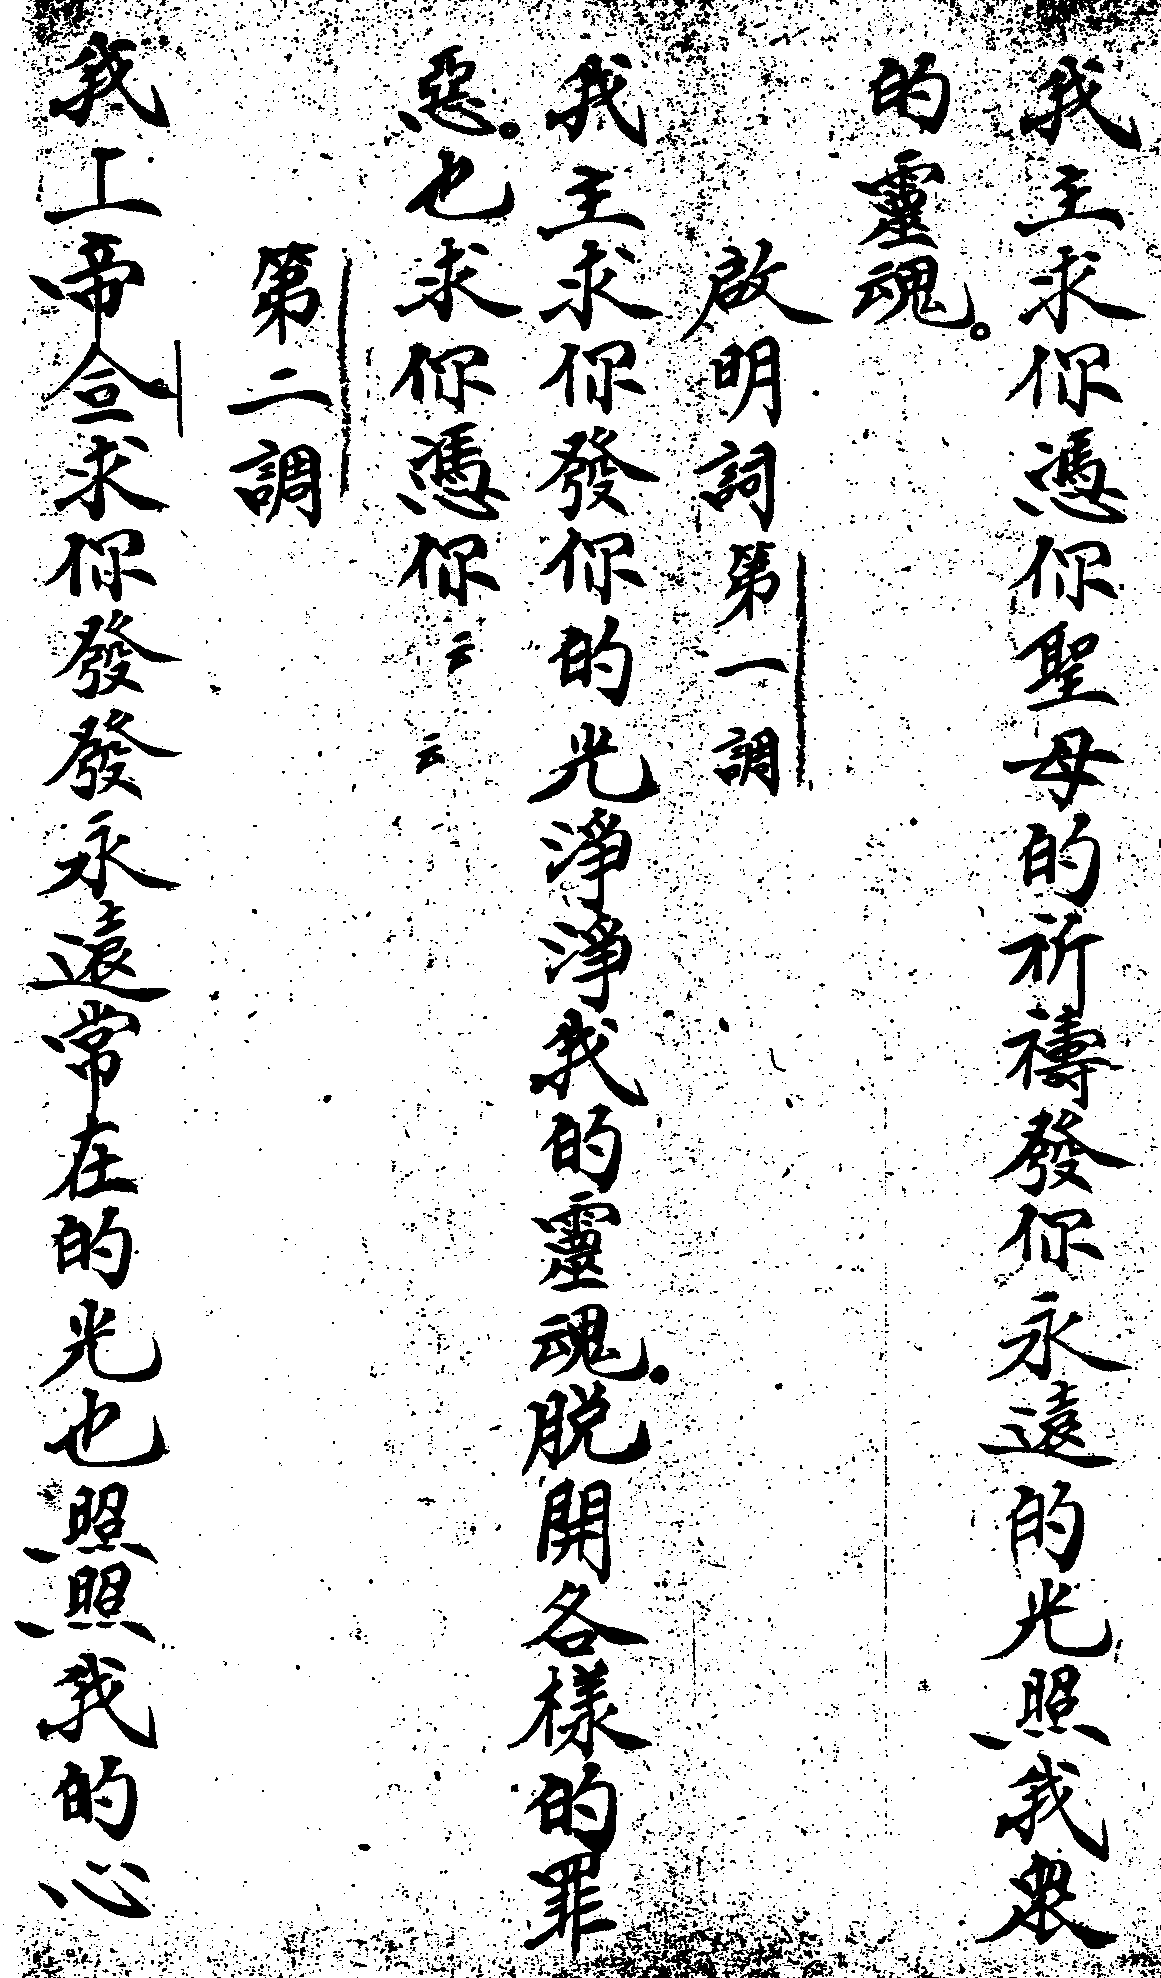 我主求你憑你聖母的祈禱發你永遠的光照我眾
的靈魂。
啟明詞第一調
我主求你發你的光淨淨我的靈魂。脫開各樣的罪
惡。也求你憑你云云
第二調
我上帝求你發發永遠常在的光也照照我的心